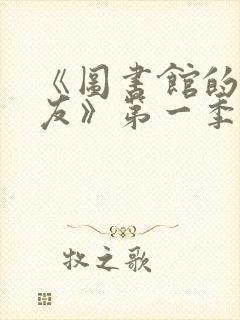 《圖書館的
友》第一季
牧之歌